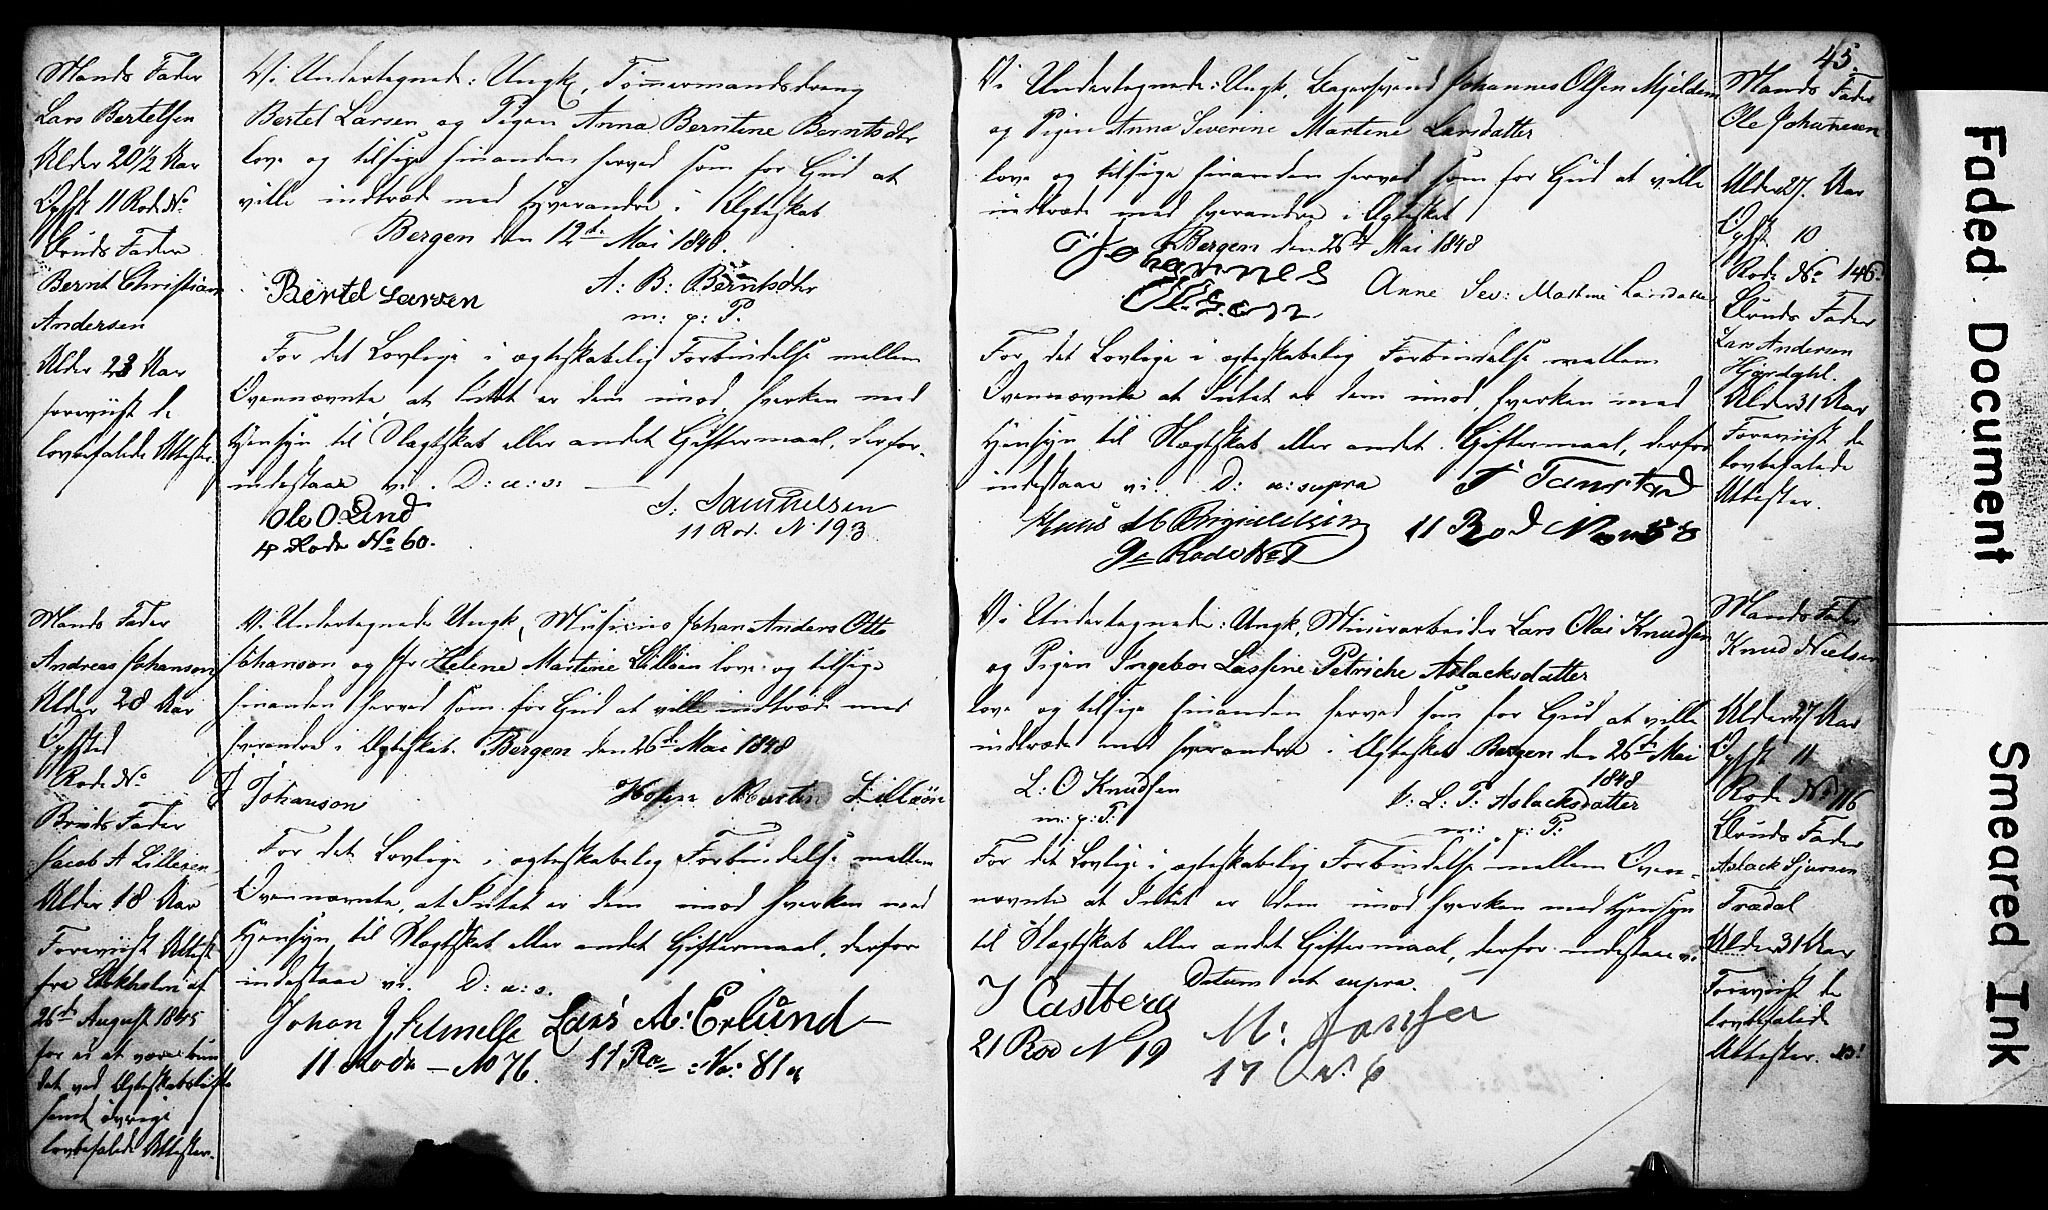 Mands Fader
Lars Bertelsen
Alder 20 1/2 Aar
Opfst 11 Rode No
Bruds Fader
Bernt Christian
Andersen
Alder 23 Aar
foreviist de
lovbefalede Attester.
Vi Undertegnede: Ungk. Tømermandsdreng
Bertel Larsen og Pigen Anna Berntine Berntsdtr
love og tilsige hinanden herved som for Gud at
ville indtræde med hverandre i Ægteskab
Bergen den 12te Mai 1848.
Bertel Larsen
A: B: Berntsdtr
m: p: P.
For det Lovlige i ægteskabelig Forbindelse mellem
Ovennævnte at Intet er dem imod, hverken med
Hensyn til Slægtskab eller andet Giftermaal, derfor
indestaae vi. D: u: s:
Ole O Lind
4 Rode No 60.
S. Samuelsen
11 Rod. N 193
Mands Fader
Andreas Johanson
Alder 28 Aar
Opfsted
Rode No
Bruds Fader
Jacob A Lilleøen
Alder 18 Aar
Foreviist Attest
fra Stokholm af
26de August 1845
for ei at være bun
det ved Ægteskabsløfte
samt øvrige
lovbefalede Attester.
Vi Undertegnede Ungk, Musicus Johan Anders Otto
Johanson og Jfr Helene Martine Lilløen love og tilsige
hinanden herved som for Gud at ville indtræde med
hverandre i Ægteskab. Bergen den 26de Mai 1848
Johanson
Helene Martine Lilleøn
For det Lovlige i ægteskabelig Forbindelse mellem
Ovennævnte, at Intet er dem imod hverken med
Hensyn til Slægtskab eller andet Giftermaal, derfor
indestaae vi. D: u: s.
Johan J Schnelle Lars A: Erlund
11 Rode No 76. 11 Ro No: 81a
45.
Vi Undertegnede: Ungk. Bagersvend Johannes Olsen Mjeldem
og Pigen Anna Severine Martine Larsdatter
love og tilsige hinanden herved som for Gud at ville
indtræde med hverandre i Ægteskab
Bergen den 26de Mai 1848
Johannes
Olsen
Anne Sev: Martine Larsdatter
For det Lovlige i ægteskabelig Forbindelse mellem
Ovennævnte at Intet er dem imod, hverken med
Hensyn til Slægtskab eller andet Giftermaal, derfor
indestaae vi. D: u: supra
11 Rod No
Mands Fader
Ole Johanesen
Alder 27. Aar
Opfst 10
Rode No 146.
Bruds Fader
Lars Andersen
Hjordahl.
Alder 31 Aar
Foreviist de
lovbefalede
Attester.
Vi Undertegnede: Ungk, Minerarbeider Lars Olai Knudsen
og Pigen Ingebor Lassine Petriche Aslacksdatter
love og tilsige hinanden herved som for Gud at ville
indtræde med hverandre i Ægteskab Bergen den 26de Mai
1848
L: O Knudsen
m: p: P:
I: L: P: Aslacksdatter
m: p: P:
For det Lovlige i ægteskabelig Forbindelse mellem Oven-
nævnte at Intet er dem imod hverken med Hensyn
til Slægtskab eller andet Giftermaal, derfor indestaae vi
Datum ut supra.
J Castberg
21 Rod N 19
M: Janser
17 N. 6
Mands Fader
Knud Nielsen
Alder 27 Aar
Opfst 11
Rode No 116
Bruds Fader
Aslack Sjursen
Frædal
Alder 31 Aar
Foreviist de
lovbefalede
Attester.
Faded Document
Smeared Ink